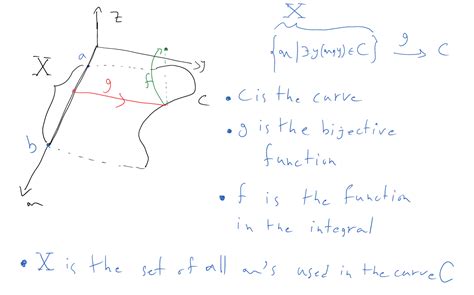 z
a
X
y
g
f
C
b
x
X
{x | ∃y (x,y) ∈ C} g → C
• C is the curve
• g is the bijective
function
• f is the function
in the integral
• X is the set of all x's used in the curve C